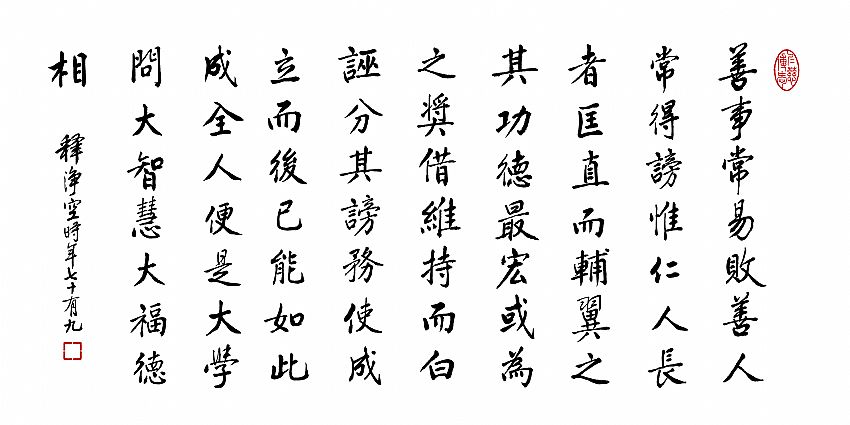 善事常易敗善人
常得謗惟仁人長
者匡直而輔翼之
其功德最宏或為
之奬借維持而白
誣分其謗務使成
立而後已能如此
成全人便是大學
問大智慧大福德
相
釋淨空時年七十有九